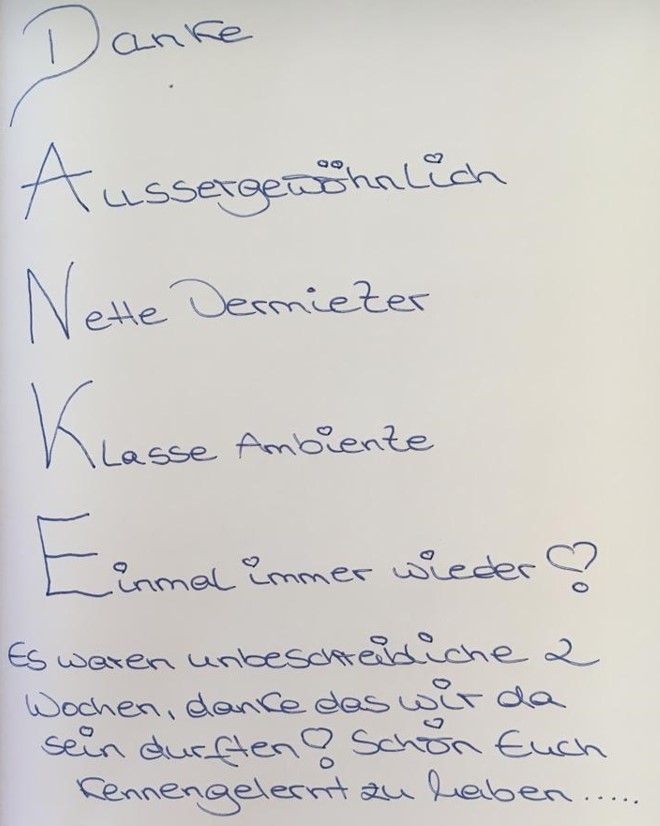 Danke
Aussergewöhnlich
Nette Vermieter
Klasse Ambiente
Einmal immer wieder!
Es waren unbeschreibliche 2
Wochen, danke das wir da
sein durften! Schön Euch
kennengelernt zu haben.....